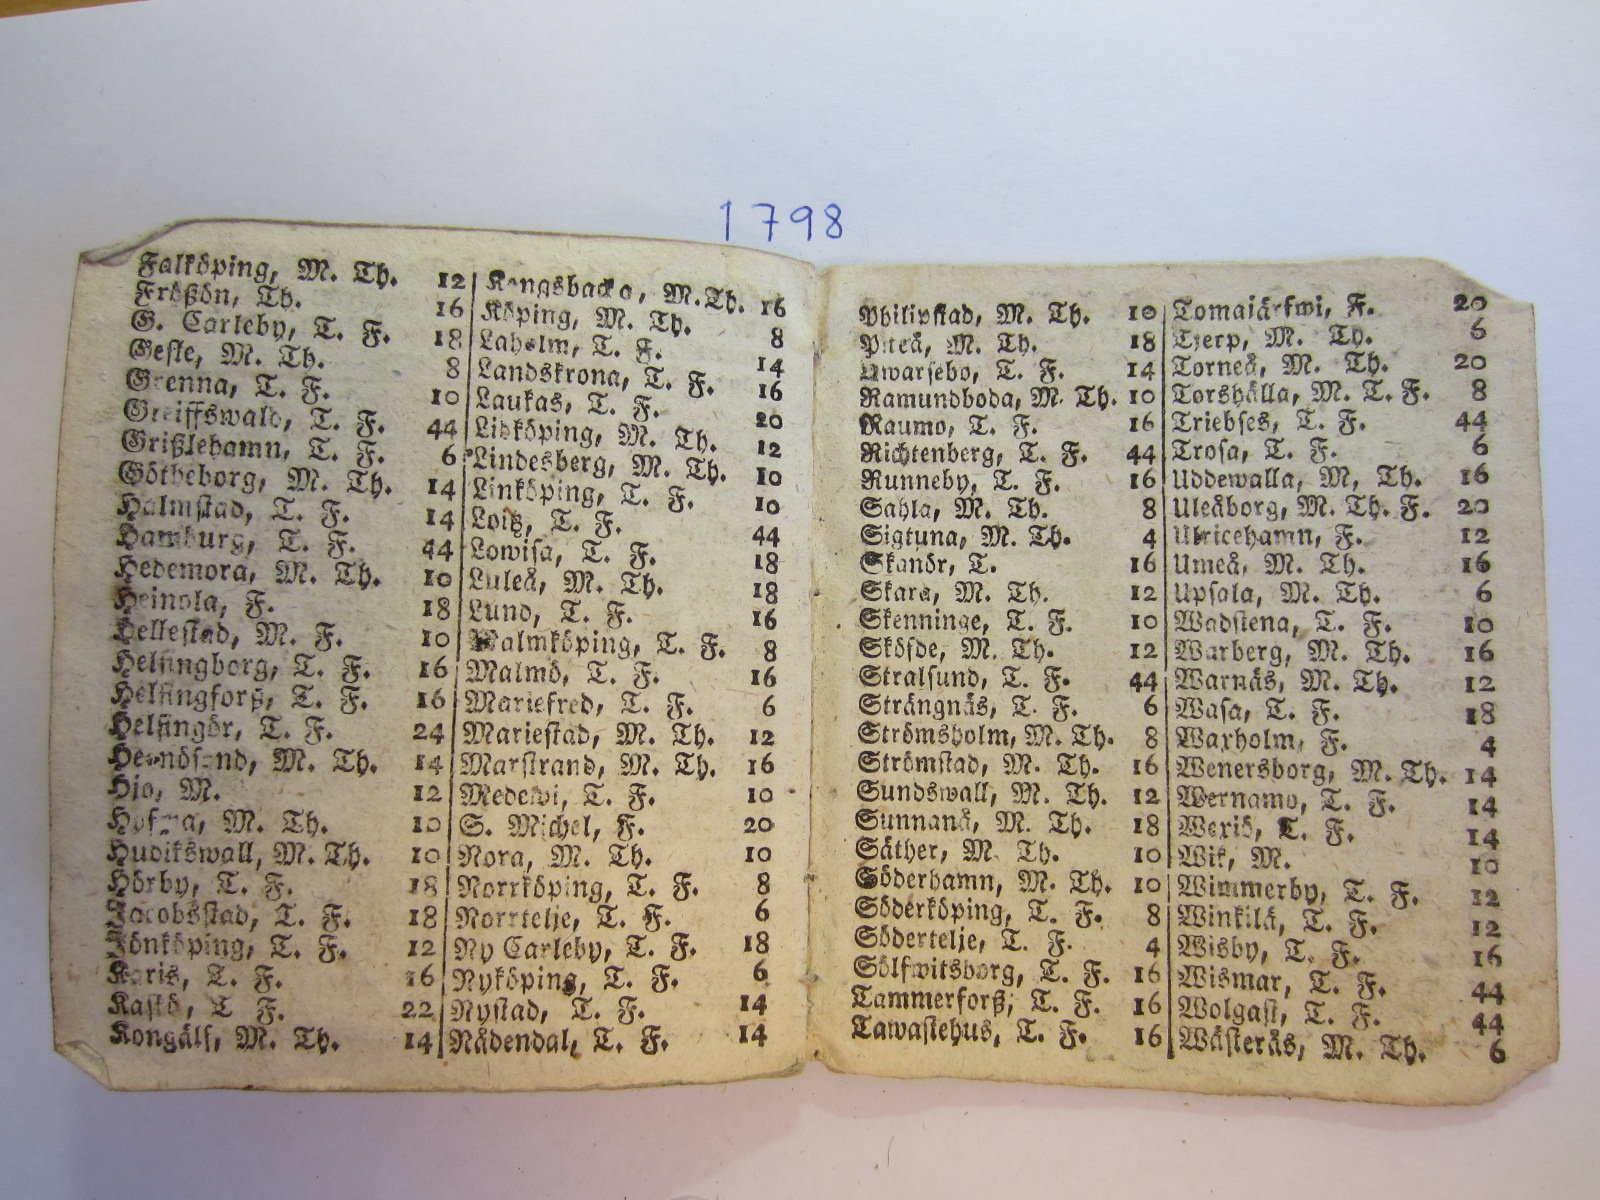 1798
Falköping, M. Th. 12
Frößön, Th. 16
G. Carleby, T. F. 18
Gefle, M. Th. 8
Grenna, T. F. 10
Greiffswald, T. F. 44
Grißlehamn, T. F. 6
Götheborg, M. Th. 14
Halmstad, T. F. 14
Hamburg, T. F. 44
Hedemora, M. Th. 10
Heinola, F. 18
Hellestad, M. F. 10
Helsingborg, T. F. 16
Helsingforß, T. F. 16
Helsingör, T. F. 24
Hernösand, M. Th. 14
Hjo, M. 12
M. Th. 10
Hudikswall, M. Th. 10
Hörby, T. F. 18
Jacobsstad, T. F. 18
Jönköping, T. F. 12
Karis, T. F. 16
Kaskö, T F. 22
Kongälf, M. Th. 14
Kongsbacka, M. Th. 16
Köping, M. Th. 8
Laholm, T. F. 14
Landskrona, T. F. 16
Laukas, T. F. 20
Lidköping, M. Th. 12
Lindesberg, M. Th. 10
Linköping, T. F. 10
Loitz, T. F. 44
Lowisa, T. F. 18
Luleå, M. Th. 18
Lund, T. F. 16
Malmköping, T. F. 8
Malmö, T. F. 16
Mariefred, T. F. 6
Mariestad, M. Th. 12
Marstrand, M. Th. 16
Medewi, T. F. 10
S. Michel, F. 20
Nora, M. Th. 10
Norrköping, T. F. 8
Norrtelje, T. F. 6
Ny Carleby, T. F. 18
Nyköping, T. F. 6
Nystad, T. F. 14
Nådendal, T. F. 14
Philipstad, M. Th. 10
Piteå, M. Th. 18
Qwarsebo, T. F. 14
Ramundboda, M. Th. 10
Raumo, T. F. 16
Richtenberg, T. F. 44
Runneby, T. F. 16
Sahla, M. Th. 8
Sigtuna, M. Th. 4
Skanör, T. 16
Skara, M. Th. 12
Skenninge, T. F. 10
Sköfde, M. Th. 12
Stralsund, T. F. 44
Strängnäs, T. F. 6
Strömsholm, M. Th. 8
Strömstad, M. Th. 16
Sundswall, M. Th. 12
Sunnanå, M. Th. 18
Säther, M. Th. 10
Söderhamn, M. Th. 10
Söderköping, T. F. 8
Södertelje, T. F. 4
Sölfwitsborg, T. F. 16
Tammerforß, T. F. 16
Tawastehus, T. F. 16
Tomajärfwi, F. 20
Tjerp, M. Th. 6
Torneå, M. Th. 20
Torshälla, M. T. F. 8
Triebses, T. F. 44
Trosa, T. F. 6
Uddewalla, M, Th. 16
Uleåborg, M. Th. F. 20
Ulricehamn, F. 12
Umeå, M. Th. 16
Upsala, M. Th. 6
Wadstena, T. F. 10
Warberg, M. Th. 16
Warnäs, M. Th. 12
Wasa, T. F. 18
Waxholm, F. 4
Wenersborg, M. Th. 14
Wernamo, T. F. 14
Wexiö, T. F. 14
Wik, M. 10
Wimmerby, T. F. 12
Winkilä, T. F. 12
Wisby, T. F. 16
Wismar, T. F. 44
Wolgast, T. F. 44
Wästerås, M. Th. 6